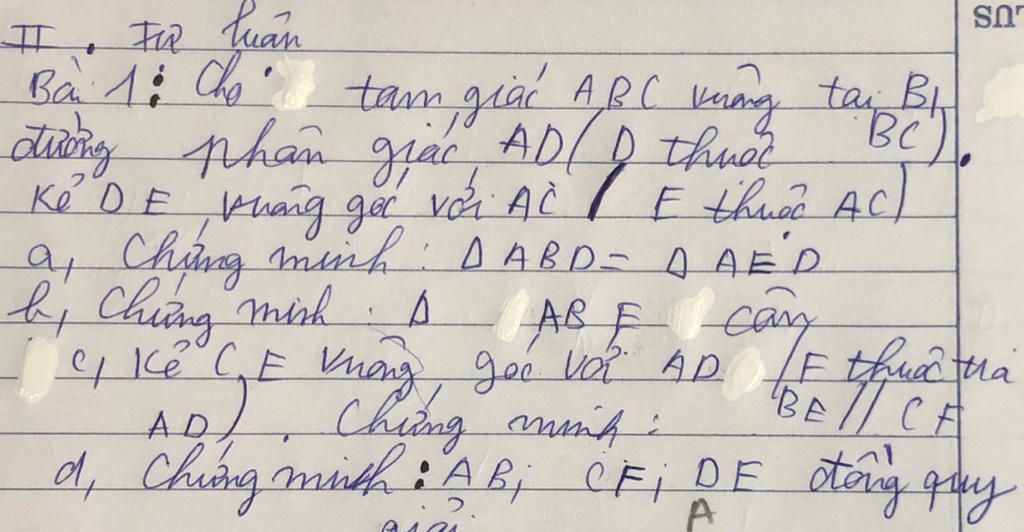 II. Tự luận
Bài 1: Cho tam giác ABC vuông tại B,
đường phân giác AD ( D thuộc BC).
Kẻ DE vuông góc với AC ( E thuộc AC)
a, Chứng minh: Δ ABD = Δ AED
b, Chứng minh: Δ ABE cân
c, Kẻ CF vuông góc với AD (F thuộc tia
AD). Chứng minh: BE // CF
d, Chứng minh: AB; CF; DE đồng quy
giải
A